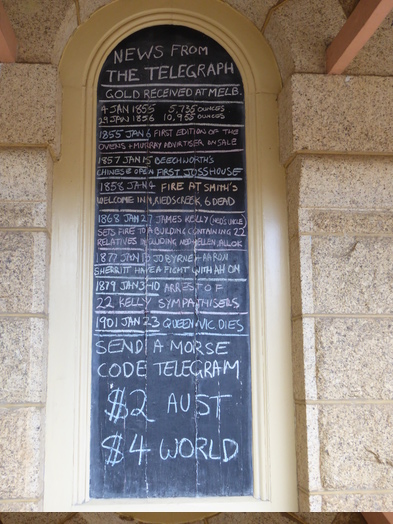 NEWS FROM
THE TELEGRAPH
GOLD RECEIVED AT MELB.
4 JAN 1855 5,735 OUNCES
29 JAN 1856 10,955 OUNCES
1855 JAN 6 FIRST EDITION OF THE
OVENS + MURRAY ADVERTISER ON SALE
1857 JAN 15 BEECHWORTH'S
CHINESE OPEN FIRST JOSSHOUSE
1858 JAN 4 FIRE AT SMITH'S
WELCOME INN, REIDSCREEK, 6 DEAD
1868 JAN 27 JAMES KELLY (NED'S UNCLE)
SETS FIRE TO A BUILDING CONTAINING 22
RELATIVES INCLUDING NED + ELLEN
1877 JAN JO BYRNE + AARON
SHERRITT HAVE A FIGHT WITH AH ON
1879 JAN 3-10 ARREST OF
22 KELLY SYMPATHISERS
1901 JAN 23 QUEEN VIC DIES
SEND A MORSE
CODE TELEGRAM
$2 AUST
$4 WORLD